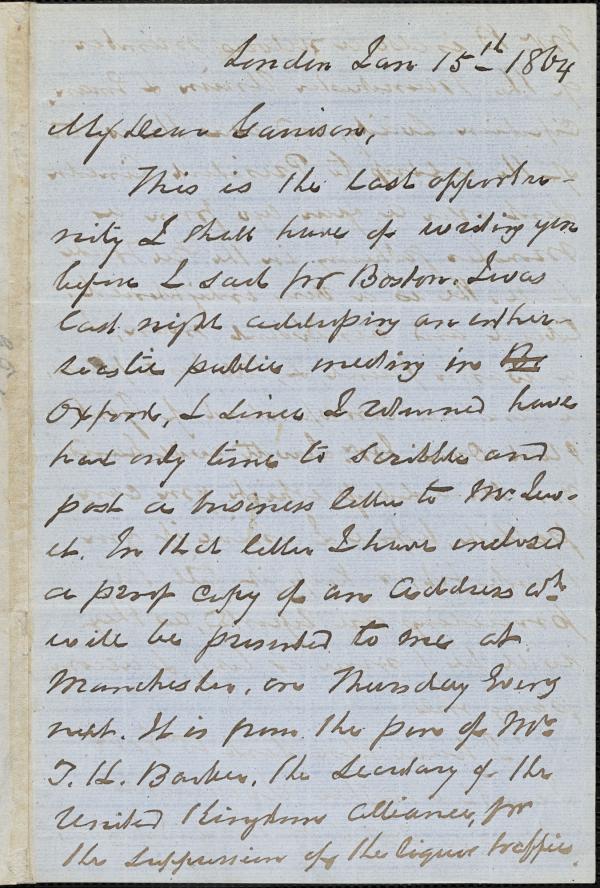 London Jan 15th 1864
My Dear Garrison,
This is the last opportu-
nity I shall have of writing you
before I sail for Boston. I was
last night addressing an enthu-
siastic public meeting in
Oxford, & since I returned have
had only time to scribble and
post a business letter to Mr.
In that letter I have inclosed
a proof copy of an Address wh
will be presented to me at
Manchester, on Thursday Eveng
next. It is from the pen of Mr.
T. H. Barker, the Secretary of the
United Kingdom Alliance, for
the suppression of the liquor traffic.